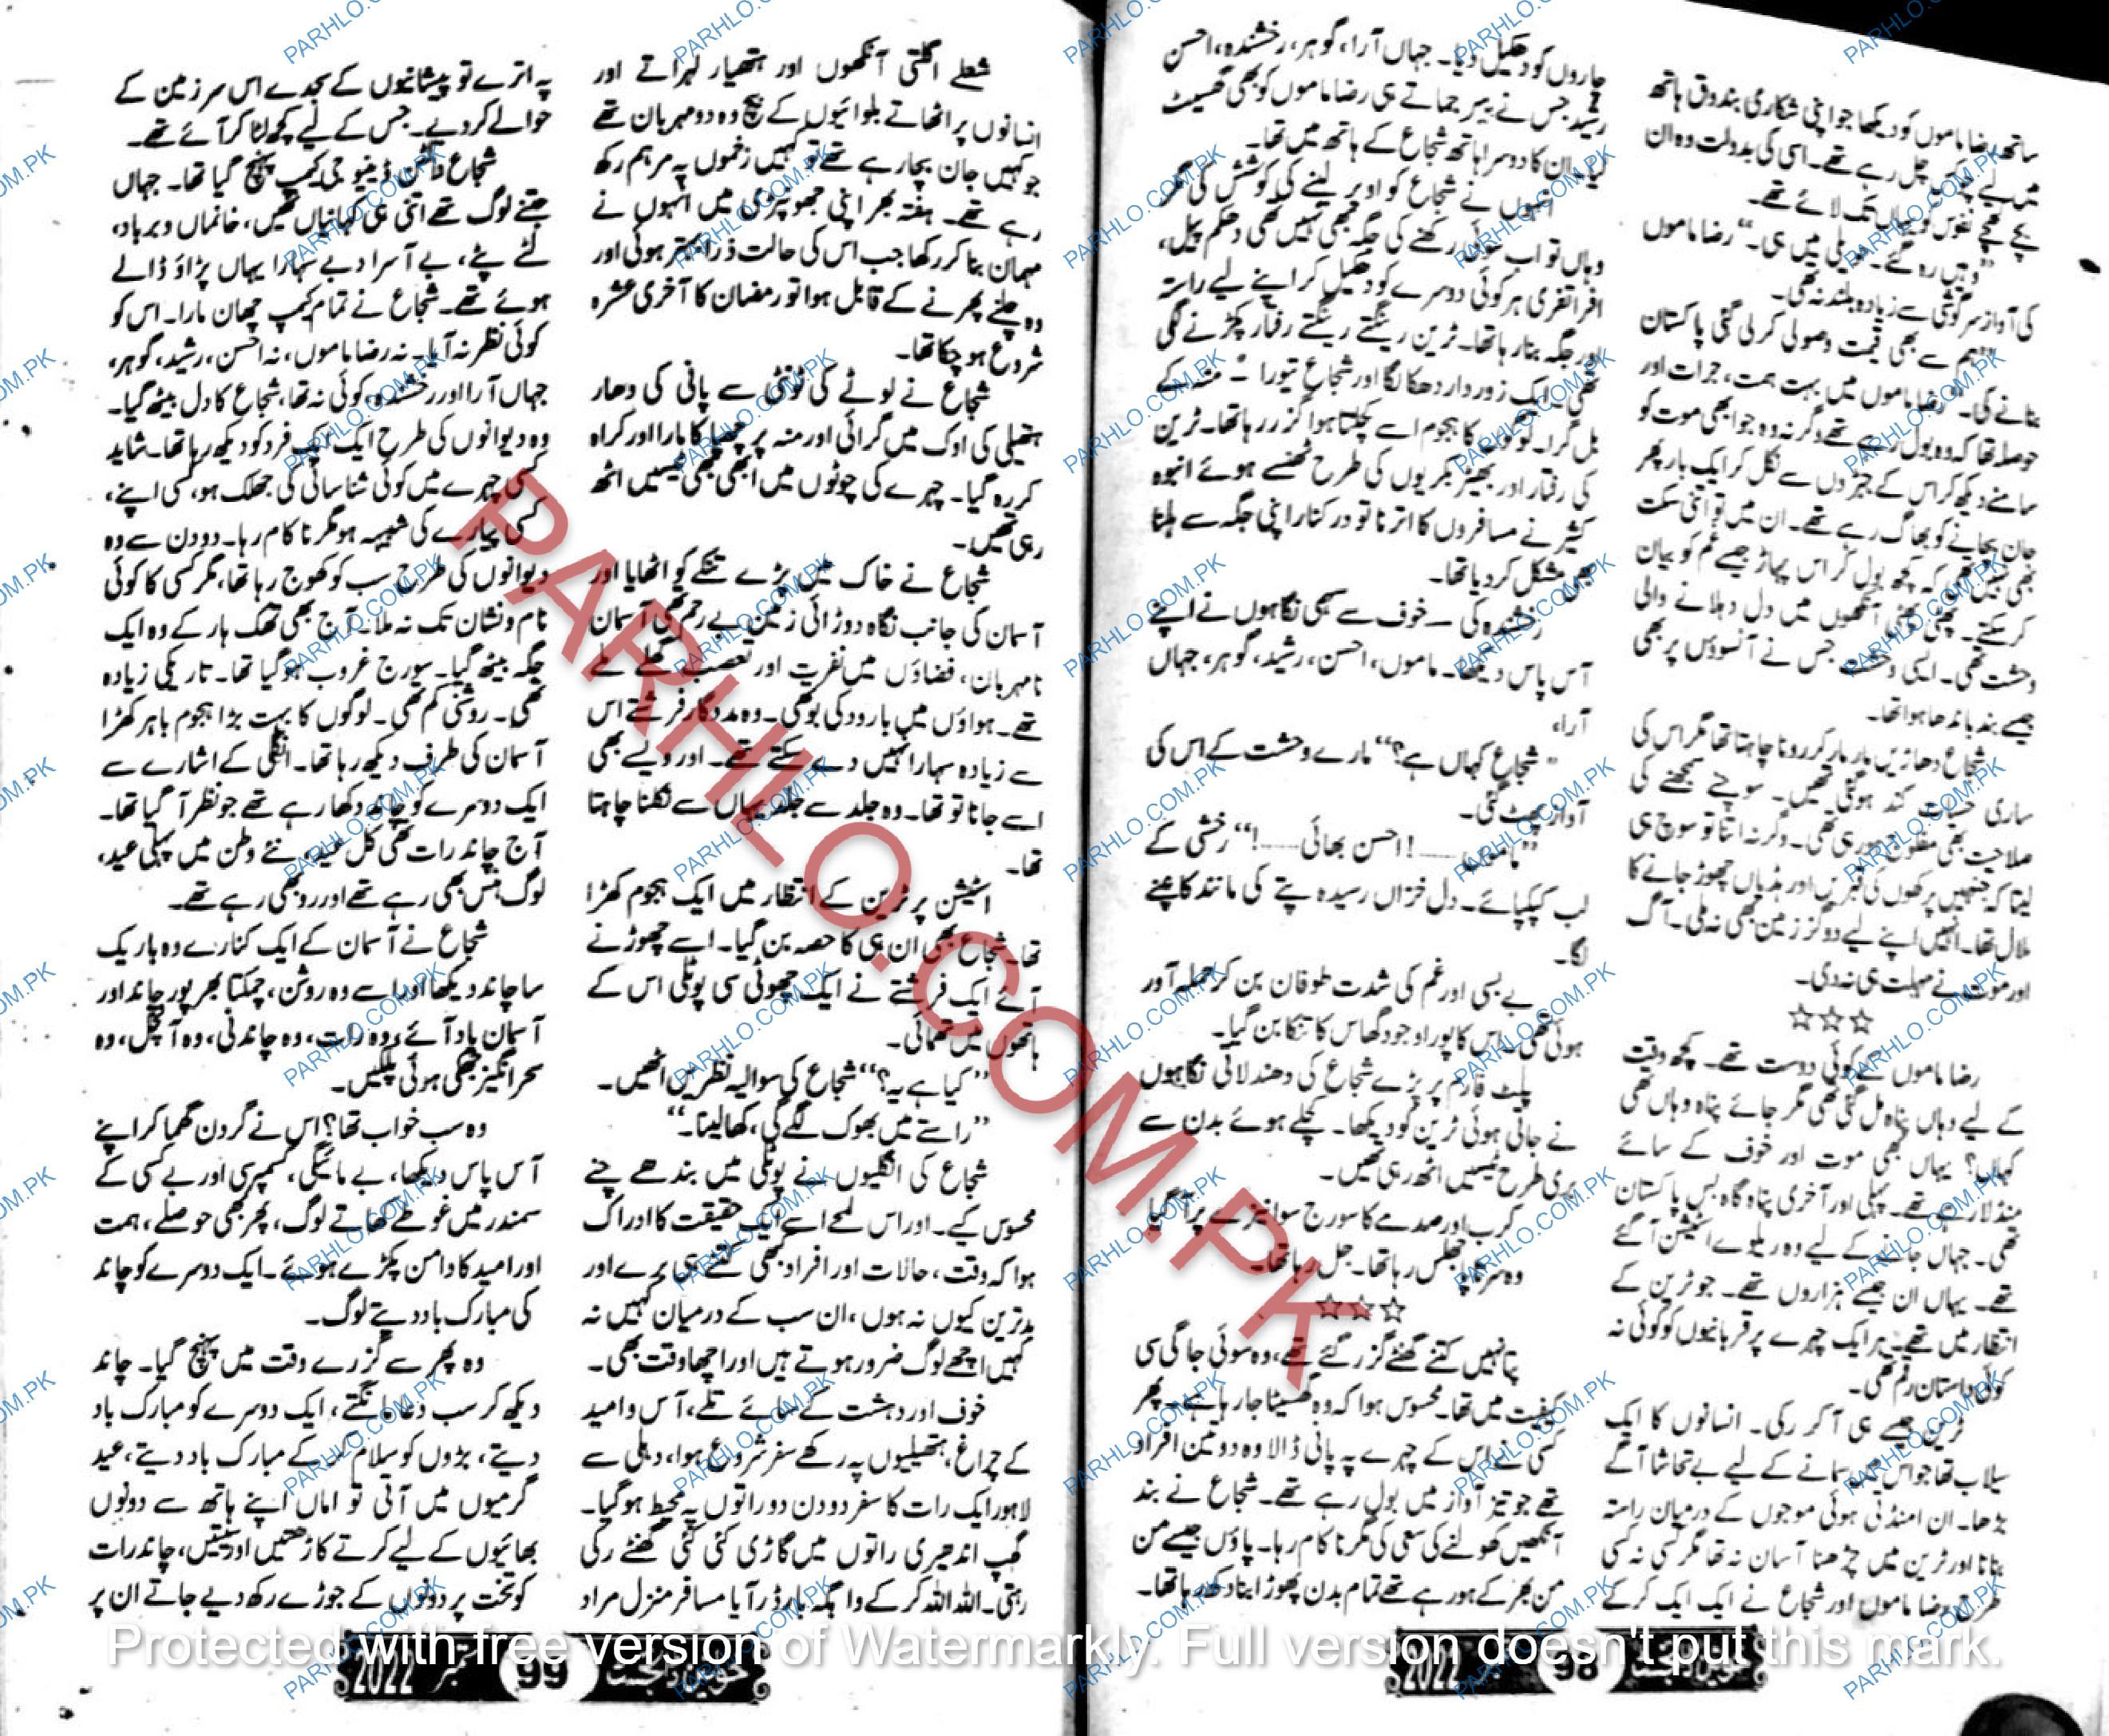 ساتھ رضا ماموں کو دیکھا جو اپنی شکاری بندوق ہاتھ
میں لیے چل رہے تھے۔ اسی کی بدولت وہ ان
بچے کھچے نفوس کو یہاں تک لائے تھے۔
”وہیں رہ گئے۔ حویلی میں ہی۔“ رضا ماموں
کی آواز سرگوشی سے زیادہ بلند نہ تھی۔
”ہم سے بھی قیمت وصولی کر لی گئی پاکستان
بنانے کی۔“ رضا ماموں میں بہت ہمت، جرات اور
حوصلہ تھا کہ وہ بول رہے تھے وگرنہ وہ جو ابھی موت کو
سامنے دیکھ کر اس کے جبڑوں سے نکل کر ایک بار پھر
جان بچانے کو بھاگ رہے تھے۔ ان میں تو اتنی سکت
بھی نہیں تھی کہ کچھ بول کر اس پہاڑ جیسے غم کو بیان
کر سکتے۔ پھٹی پھٹی آنکھوں میں دل دہلانے والی
وحشت تھی۔ ایسی وحشت جس نے آنسوؤں پر بھی
جیسے بند باندھا ہوا تھا۔
شجاع دھاڑیں مار مار کر رونا چاہتا تھا مگر اس کی
ساری حسیات کند ہو گئی تھیں۔ سوچنے سمجھنے کی
صلاحیت بھی مفلوج ہو رہی تھی۔ وگرنہ اتنا تو سوچ ہی
لیتا کہ جنہیں پرکھوں کی قبریں اور ہڈیاں چھوڑ جانے کا
ملال تھا۔ انہیں اپنے لیے دو گز زمین بھی نہ ملی۔ آگ
اور موت نے مہلت ہی نہ دی۔
☆☆☆
رضا ماموں کے کوئی دوست تھے۔ کچھ وقت
کے لیے وہاں پناہ مل گئی تھی مگر جائے پناہ وہاں بھی
کہاں؟ یہاں بھی موت اور خوف کے سائے
منڈلا رہے تھے۔ پہلی اور آخری پناہ گاہ بس پاکستان
تھی۔ جہاں جانے کے لیے وہ ریلوے اسٹیشن آ گئے
تھے۔ یہاں ان جیسے ہزاروں تھے۔ جو ٹرین کے
انتظار میں تھے۔ ہر ایک چہرے پر قربانیوں کو کوئی نہ
کوئی داستان رقم تھی۔
ٹرین جیسے ہی آ کر رکی۔ انسانوں کا ایک
سیلاب تھا جو اس میں سمانے کے لیے بے تحاشا آگے
بڑھا۔ ان امنڈتی ہوئی موجوں کے درمیان راستہ
بنانا اور ٹرین میں چڑھنا آسان نہ تھا مگر کسی نہ کسی
طرح رضا ماموں اور شجاع نے ایک ایک کر کے
چاروں کو دھکیل دیا۔ جہاں آرا، گوہر، رخشندہ، احسن
رشید جس نے پیر جماتے ہی رضا ماموں کو بھی گھسیٹ
لیا۔ ان کا دوسرا ہاتھ شجاع کے ہاتھ میں تھا۔
انہوں نے شجاع کو اوپر لینے کی کوشش کی مگر
وہاں تو اب سوئی رکھنے کی جگہ بھی نہیں تھی دھکم پیل،
افراتفری ہر کوئی دوسرے کو دھکیل کر اپنے لیے راستہ
اور جگہ بنا رہا تھا۔ ٹرین رینگتے رینگتے رفتار پکڑنے لگی
تھی۔ ایک زوردار دھکا لگا اور شجاع تیورا کے منہ کے
بل گرا۔ لوگوں کا ہجوم اسے کچلتا ہوا گزر رہا تھا۔ ٹرین
کی رفتار اور بھیڑ بکریوں کی طرح ٹھنسے ہوئے انبوہ
کثیر نے مسافروں کا اترنا تو درکنار اپنی جگہ سے ہلنا
بھی مشکل کر دیا تھا۔
رخشندہ کی خوف سے بھی نگاہوں نے اپنے
آس پاس دیکھا۔ ماموں، احسن، رشید، گوہر، جہاں
آرا،
”شجاع کہاں ہے؟“ مارے وحشت کے اس کی
آواز پھٹ گئی۔
”ماموں......! احسن بھائی......!“ رخشی کے
لب کپکپائے۔ دل خزاں رسیدہ پتے کی مانند کانپنے
لگا۔
بے بسی اور غم کی شدت طوفان بن کر حملہ آور
ہوئی تھی۔ اس کا پورا وجود گھاس کا تنکا بن گیا۔
پلیٹ فارم پر پڑے شجاع کی دھندلائی نگاہوں
نے جاتی ہوئی ٹرین کو دیکھا۔ کچلے ہوئے بدن سے
بری طرح ٹیسیں اٹھ رہی تھیں۔
کرب اور صدمے کا سورج سوا نیزے پر آ گیا
وہ سر تا پا جھلس رہا تھا۔ جل رہا تھا۔
☆☆☆
پتا نہیں کتنے گھنٹے گزر گئے تھے، وہ سوئی جاگی سی
کیفیت میں تھا۔ محسوس ہوا کہ وہ گھسیٹا جا رہا ہے۔ پھر
کسی نے اس کے چہرے پہ پانی ڈالا وہ دو تین افراد
تھے جو تیز آواز میں بول رہے تھے۔ شجاع نے بند
آنکھیں کھولنے کی سعی کی مگر ناکام رہا۔ پاؤں جیسے من
من بھر کے ہو رہے تھے تمام بدن پھوڑا بنا دکھ رہا تھا۔
خواتین ڈائجسٹ 98 2022
شعلے اگلتی آنکھوں اور ہتھیار لہراتے اور
انسانوں پر اٹھاتے بلوائیوں کے بیچ وہ دو مہربان تھے
جو کہیں جان بچا رہے تھے تو کہیں زخموں پہ مرہم رکھ
رہے تھے۔ ہفتہ بھر اپنی جھونپڑی میں انہوں نے
مہمان بنا کر رکھا جب اس کی حالت ذرا بہتر ہوئی اور
وہ چلنے پھرنے کے قابل ہوا تو رمضان کا آخری عشرہ
شروع ہو چکا تھا۔
شجاع نے لوٹے کی ٹونٹی سے پانی کی دھار
ہتھیلی کی اوک میں گرائی اور منہ پر چھپاکا مارا اور کراہ
کر رہ گیا۔ چہرے کی چوٹوں میں ابھی بھی ٹیسیں اٹھ
رہی تھیں۔
شجاع نے خاک میں پڑے تنکے کو اٹھایا اور
آسمان کی جانب نگاہ دوڑائی زمین بے رحم تھی آسمان
نامہربان، فضاؤں میں نفرت اور تعصب گھلے
تھے۔ ہواؤں میں بارود کی بو تھی۔ وہ مددگار فرشتے اس
سے زیادہ سہارا نہیں دے سکتے تھے۔ اور ویسے بھی
اسے جانا تو تھا۔ وہ جلد سے جلد یہاں سے نکلنا چاہتا
تھا۔
اسٹیشن پر ٹرین کے انتظار میں ایک ہجوم کھڑا
تھا۔ شجاع بھی ان ہی کا حصہ بن گیا۔ اسے چھوڑنے
آئے ایک فرشتے نے ایک چھوٹی سی پوٹلی اس کے
ہاتھوں میں تھمائی۔
”کیا ہے یہ؟“ شجاع کی سوالیہ نظریں اٹھیں۔
”راستے میں بھوک لگے گی، کھا لینا۔“
شجاع کی انگلیوں نے پوٹلی میں بندھے چنے
محسوس کیے۔ اور اس لمحے اسے ایک حقیقت کا ادراک
ہوا کہ وقت، حالات اور افراد کبھی کتنے ہی برے اور
بدترین کیوں نہ ہوں، ان سب کے درمیان کہیں نہ
کہیں اچھے لوگ ضرور ہوتے ہیں اور اچھا وقت بھی۔
خوف اور دہشت کے سائے تلے، آس و امید
کے چراغ ہتھیلیوں پہ رکھے سفر شروع ہوا، دہلی سے
لاہور ایک رات کا سفر دو دن دو راتوں پہ محیط ہو گیا۔
گھپ اندھیری راتوں میں گاڑی کئی کئی گھنٹے رکی
رہتی۔ اللہ اللہ کر کے واہگہ بارڈر آیا مسافر منزل مراد
پہ اترے تو پیشانیوں کے سجدے اس سرزمین کے
حوالے کر دیے۔ جس کے لیے کچھ لٹا کر آئے تھے۔
شجاع والٹن ڈینیو جی کیمپ پہنچ گیا تھا۔ جہاں
جتنے لوگ تھے اتنی ہی کہانیاں تھیں، خانماں و برباد،
لٹے پٹے، بے آسرا و بے سہارا یہاں پڑاؤ ڈالے
ہوئے تھے۔ شجاع نے تمام کیمپ چھان مارا۔ اس کو
کوئی نظر نہ آیا۔ نہ رضا ماموں، نہ احسن، رشید، گوہر،
جہاں آرا اور رخشندہ، کوئی نہ تھا، شجاع کا دل بیٹھ گیا۔
وہ دیوانوں کی طرح ایک ایک فرد کو دیکھ رہا تھا۔ شاید
کسی چہرے میں کوئی شناسائی کی جھلک ہو، کسی اپنے،
کسی پیارے کی شبیہہ ہو مگر ناکام رہا۔ دو دن سے وہ
دیوانوں کی طرح سب کو کھوج رہا تھا، مگر کسی کا کوئی
نام و نشان تک نہ ملا۔ آج بھی تھک ہار کے وہ ایک
جگہ بیٹھ گیا۔ سورج غروب ہو گیا تھا۔ تاریکی زیادہ
تھی۔ روشنی کم تھی۔ لوگوں کا بہت بڑا ہجوم باہر کھڑا
آسمان کی طرف دیکھ رہا تھا۔ انگلی کے اشارے سے
ایک دوسرے کو چاند دکھا رہے تھے جو نظر آ گیا تھا۔
آج چاند رات تھی کل عید، نئے وطن میں پہلی عید،
لوگ ہنس بھی رہے تھے اور رو بھی رہے تھے۔
شجاع نے آسمان کے ایک کنارے وہ باریک
سا چاند دیکھا اور اسے وہ روشن، چمکتا بھرپور چاند اور
آسمان یاد آئے، وہ رات، وہ چاندنی، وہ آنچل، وہ
سحر انگیز جھکی ہوئی پلکیں۔
وہ سب خواب تھا؟ اس نے گردن گھما کر اپنے
آس پاس دیکھا، بے مائیگی، کسمپرسی اور بے کسی کے
سمندر میں غوطے کھاتے لوگ، پھر بھی حوصلے، ہمت
اور امید کا دامن پکڑے ہوئے۔ ایک دوسرے کو چاند
کی مبارک باد دیتے لوگ۔
وہ پھر سے گزرے وقت میں پہنچ گیا۔ چاند
دیکھ کر سب دعا مانگتے، ایک دوسرے کو مبارک باد
دیتے، بڑوں کو سلام کر کے مبارک باد دیتے، عید
گرمیوں میں آتی تو اماں اپنے ہاتھ سے دونوں
بھائیوں کے لیے کرتے کاڑھتیں اور سیتیں، چاند رات
کو تخت پر دونوں کے جوڑے رکھ دیے جاتے ان پر
خواتین ڈائجسٹ 99 ستمبر 2022
PARHLO.COM.PK
Protected with free version of Watermarkly. Full version doesn't put this mark.